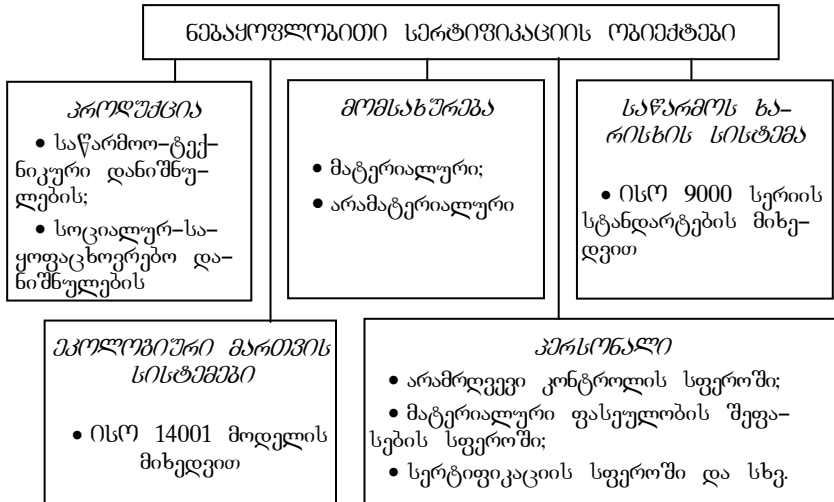 ნებაყოფლობითი სერტიფიკაციის ობიექტები
პროდუქცია
• საწარმოო-ტექ-
ნიკური დანიშნუ-
ლების;
• სოციალურ-სა-
ყოფაცხოვრებო და-
ნიშნულების
მომსახურება
• მატერიალური;
• არამატერიალური
საწარმოს ხა-
რისხის სისტემა
• ისო 9000 სერიის
სტანდარტების მიხე-
დვით
ეკოლოგიური მართვის
სისტემები
• ისო 14001 მოდელის
მიხედვით
პერსონალი
• არამრღვევი კონტროლის სფეროში;
• მატერიალური ფასეულობის შეფა-
სების სფეროში;
• სერტიფიკაციის სფეროში და სხვ.